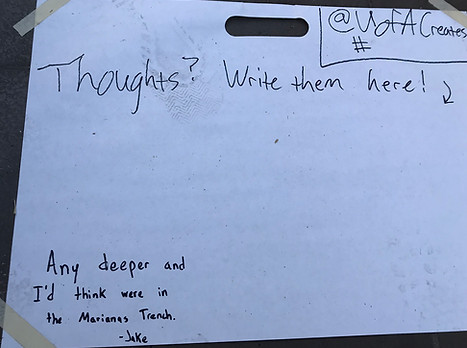 @UofACreates
#
Thoughts? Write them here!
Any deeper and
I'd think were in
the Marianas Trench.
-Jake